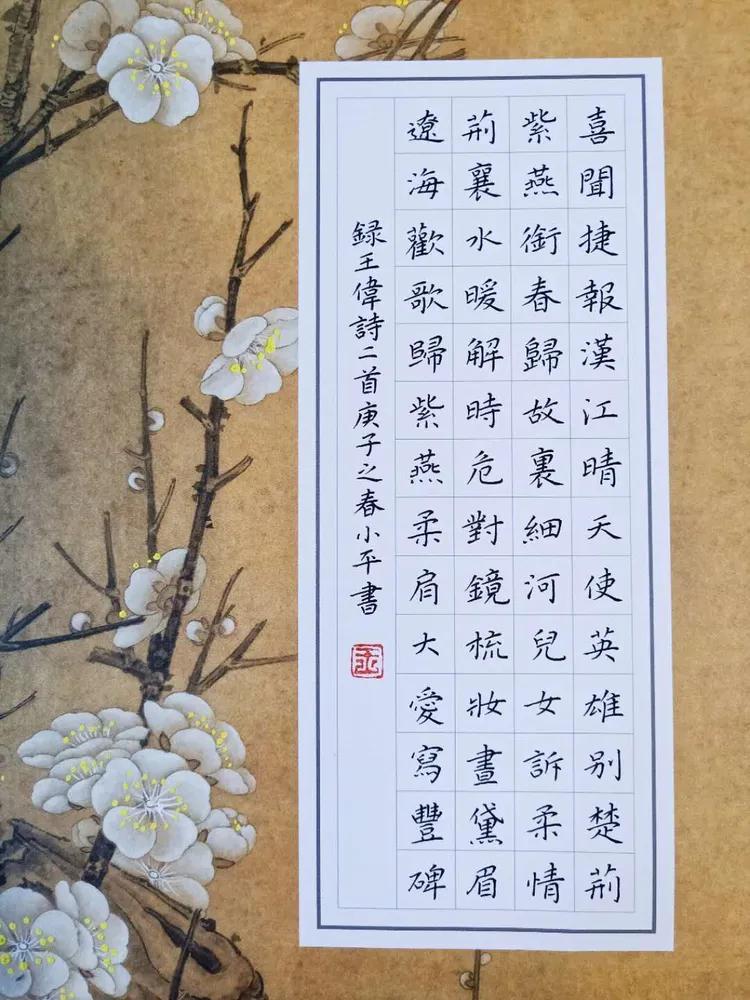 喜聞捷報漢江晴天使英雄別楚荊
紫燕銜春歸故裏細河兒女訴柔情
荊襄水暖解時危對鏡梳妝畫黛眉
遼海歡歌歸紫燕柔肩大愛寫豐碑
録王偉詩二首庚子之春小平書